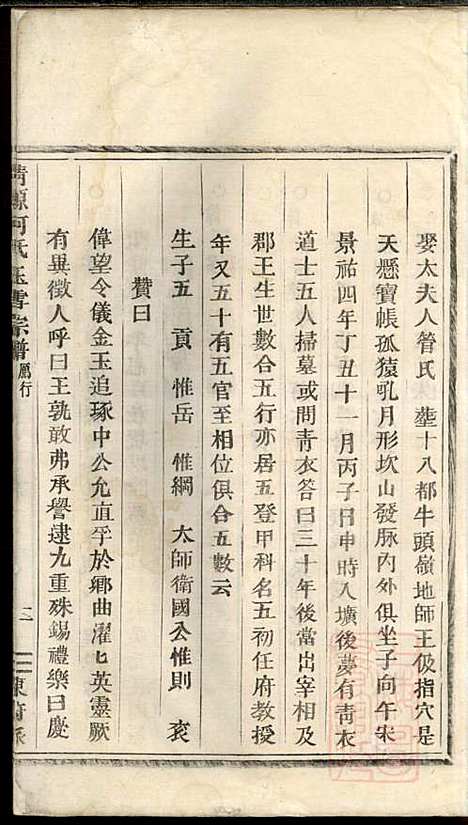 娶太夫人管氏　塟十八都牛頭嶺地師王伋指穴是
天懸寶帳孤猿吼月形坎山發脉內外俱坐子向午宋
景祐四年丁丑十一月丙子日申時入壙後夢有靑衣
道士五人掃墓或問靑衣答曰三十年後當出宰相及
郡王生世數合五行亦居五登甲科名五初任府教授
年又五十有五官至相位俱合五數云
生子五　貢　惟岳　惟綱　太師衛國公惟則　袞
贊曰
偉望令儀金玉追琢中公允直孚於鄉曲濯匕英靈厥
有異徵人呼曰王孰敢弗承譽逮九重殊錫禮樂曰慶
何氏玉雪宗譜
三
東府派